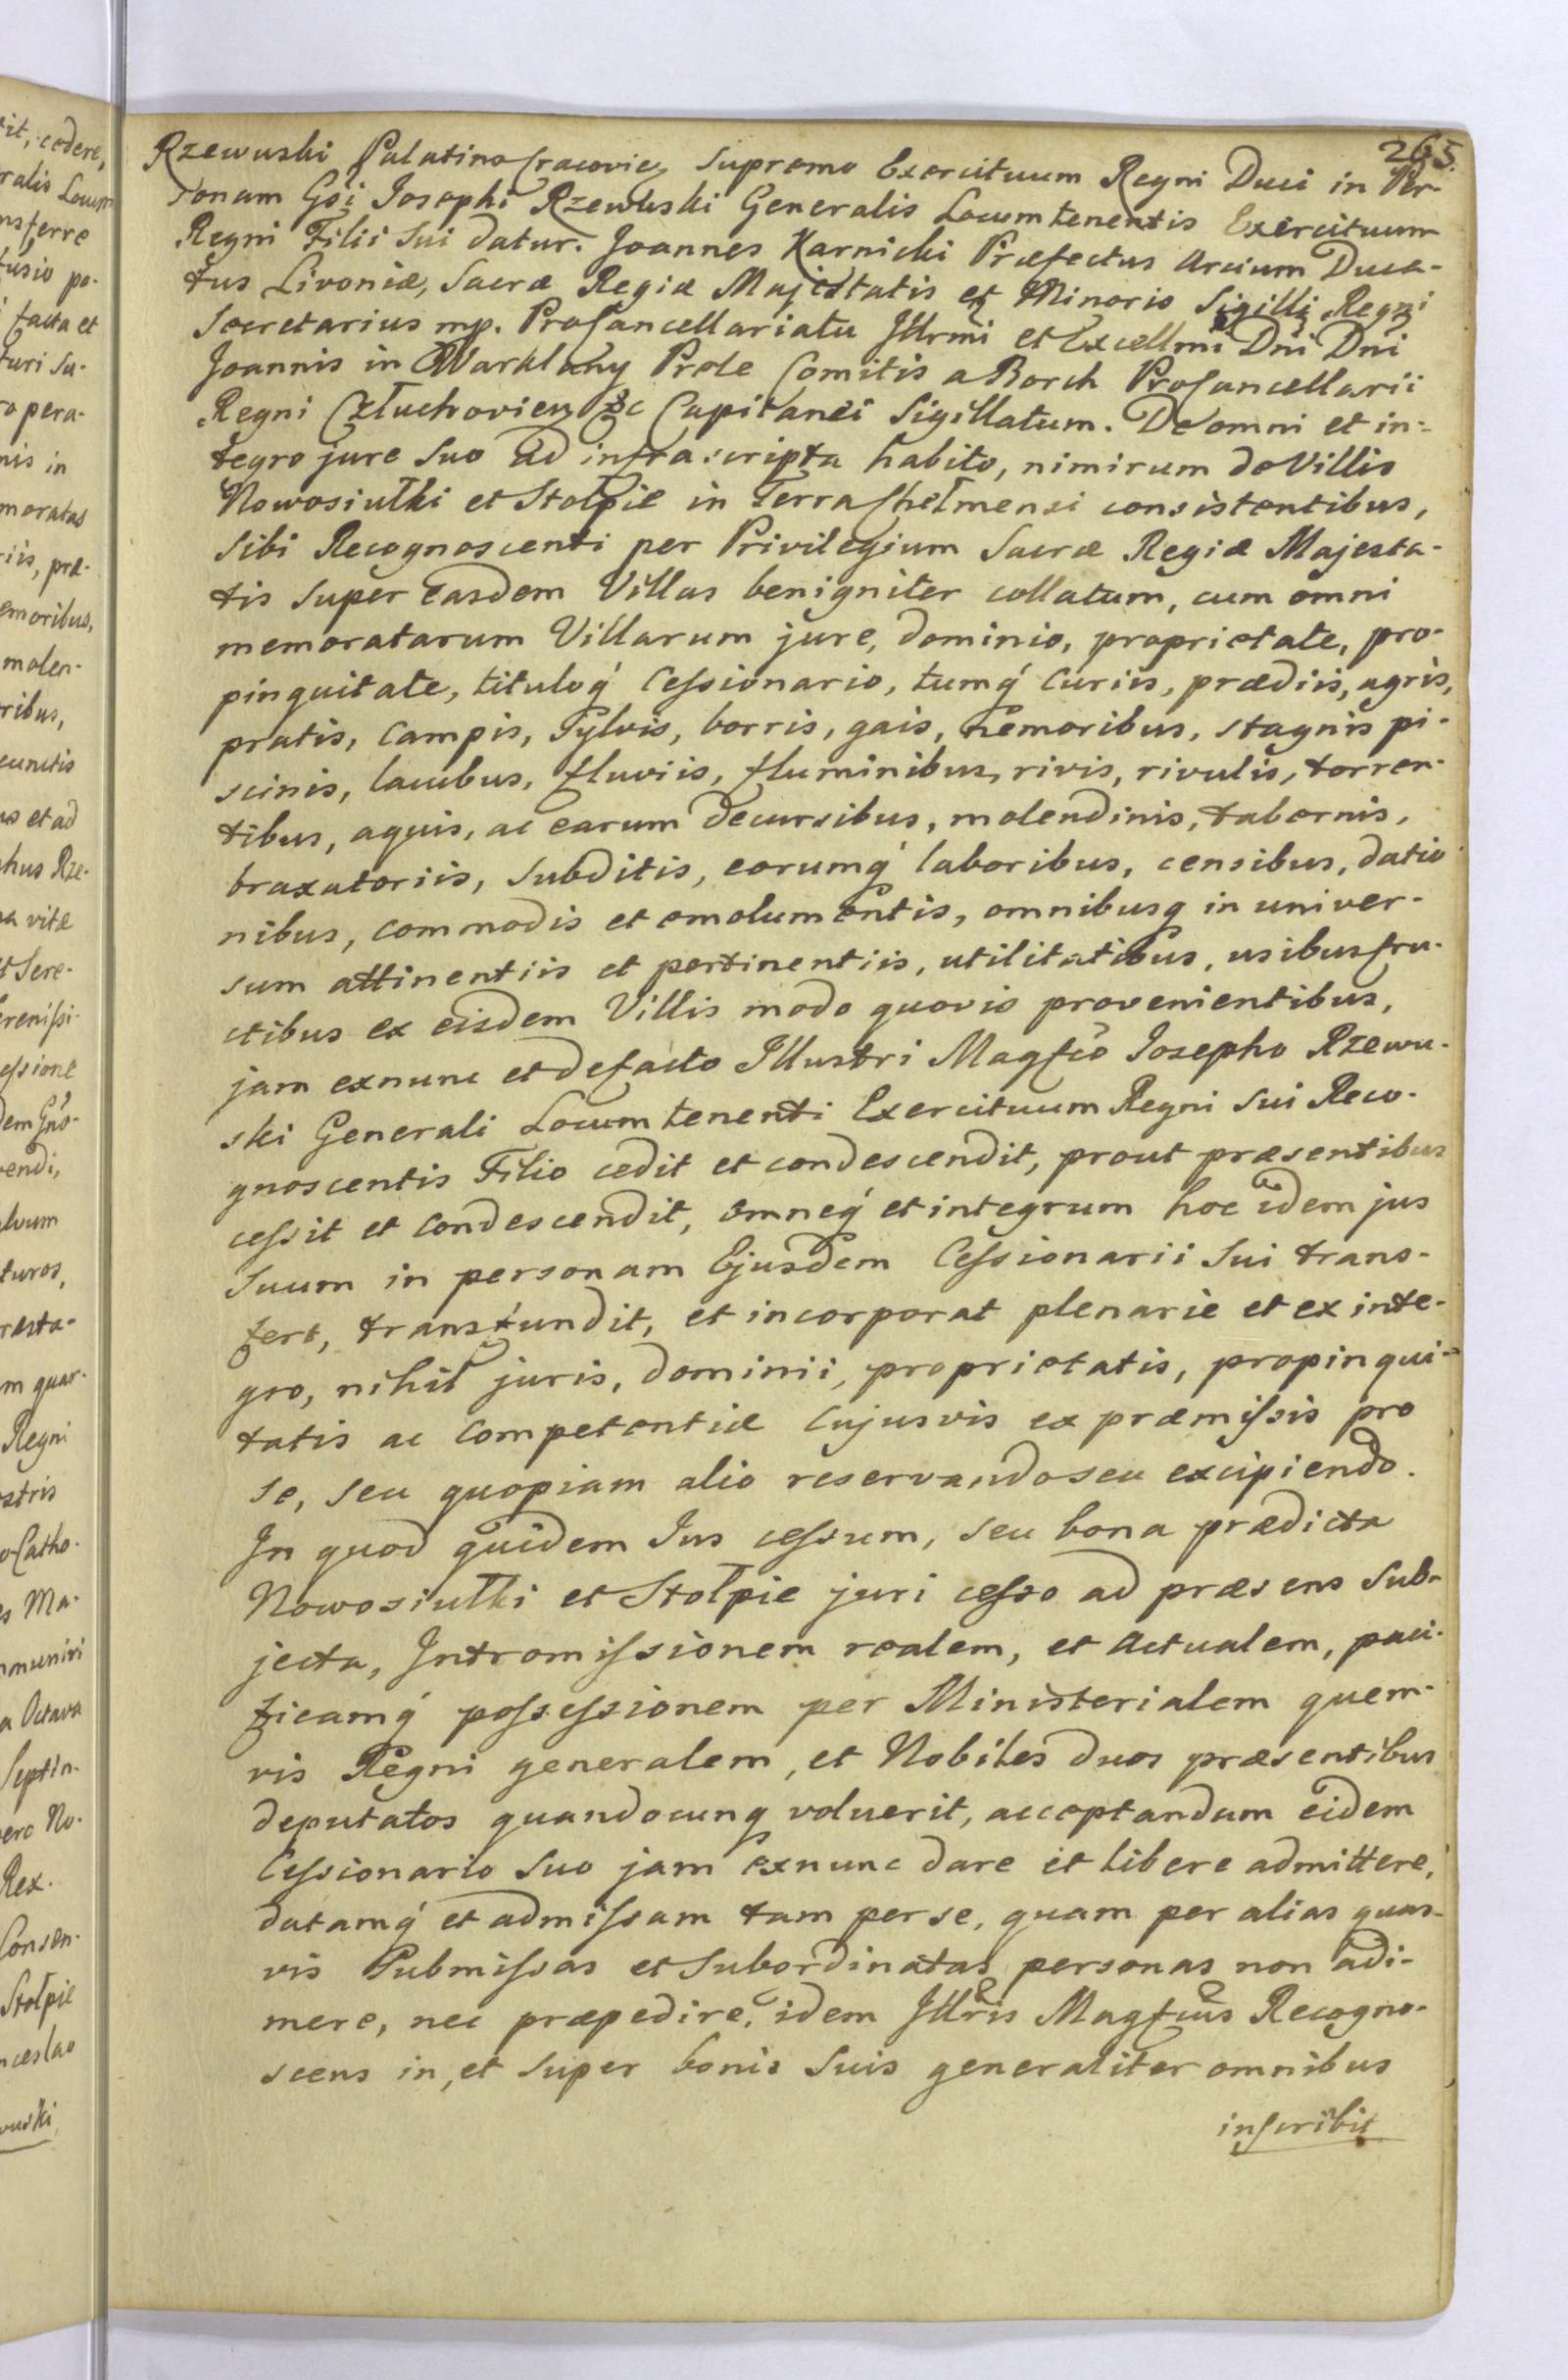 265.
Rzewuski Palatino Cracovien Supremo Exercituum Regni Duci in Per-
sonam Gsi Josephi Rzewuski Generalis Locumtenentis Exercituum
Regni Filii Sui datur. Joannes Karnicki Præfectus Arcium Duca-
tus Livoniæ, Sacræ Regiæ Majestatis et Minoris Sigilli Regni
Secretarius mp. ProCancellariatu Jllrmi et Excellmi Dni Dni
Joannis in Warklany Prole Comitis a Borch ProCancellarii
Regni Człuchovien &c Capitanei Sigillatum. De omni et in-
tegro jure Suo ad infrascripta habito, nimirum de Villis
Nowosiułki et Stołpie in Terra Chełmensi consistentibus,
Sibi Recognoscenti per Privilegium Sacræ Regiæ Majesta-
tis Super Easdem Villas benigniter collatum, cum omni
memoratarum Villarum jure, dominio, proprietate, pro-
pinquitate, tituloq́ Cessionario, tumq́ Curiis, prædiis, agris,
pratis, Campis, Sylvis, borris, gais, Nemoribus, stagnis pi-
scinis, lacubus, fluviis, fluminibus, rivis, rivulis, torren-
tibus, aquis, ac earum decursibus, molendinis, tabernis,
braxatoriis, Subditis, eorumq́ laboribus, censibus, datio
nibus, commodis et emolumentis, omnibusq in univer-
sum attinentiis et pertinentiis, utilitatibus, usibusfru-
ctibus ex eisdem Villis modo quovis provenientibus,
jam exnunc et defacto Jllustri Magfco Josepho Rzewu-
ski Generali Locumtenenti Exercituum Regni Sui Reco-
gnoscentis Filio cedit et condescendit, prout præsentibus
cessit et condescendit, omneq́ et integrum hoc idem jus
Suum in personam Ejusdem Cessionarii Sui trans-
fert, transfundit, et incorporat plenarie et ex inte-
gro, nihil juris, dominii, proprietatis, propinqui-
tatis ac Competentiæ Cujusvis ex præmissis pro
se, seu quopiam alio reservando seu excipiendo.
Jn quod quidem Jus cessum, seu bona prædicta
Nowosiułki et Stołpie juri cesso ad præsens Sub-
jecta, Jntromissionem realem, et Actualem, paci-
ficamq́ possessionem per Ministerialem quem-
vis Regni generalem, et Nobiles duos præsentibus
deputatos quandocunq voluerit, acceptandum eidem
Cessionario Suo jam exnunc dare et libere admittere,
datamq́ et admissam tam per se, quam per alias quas-
vis Submissas et Subordinatas personas non adi-
mere, nec præpedire, idem Jllris Magfcus Recogno-
scens in, et Super bonis Suis generaliter omnibus
inscribit